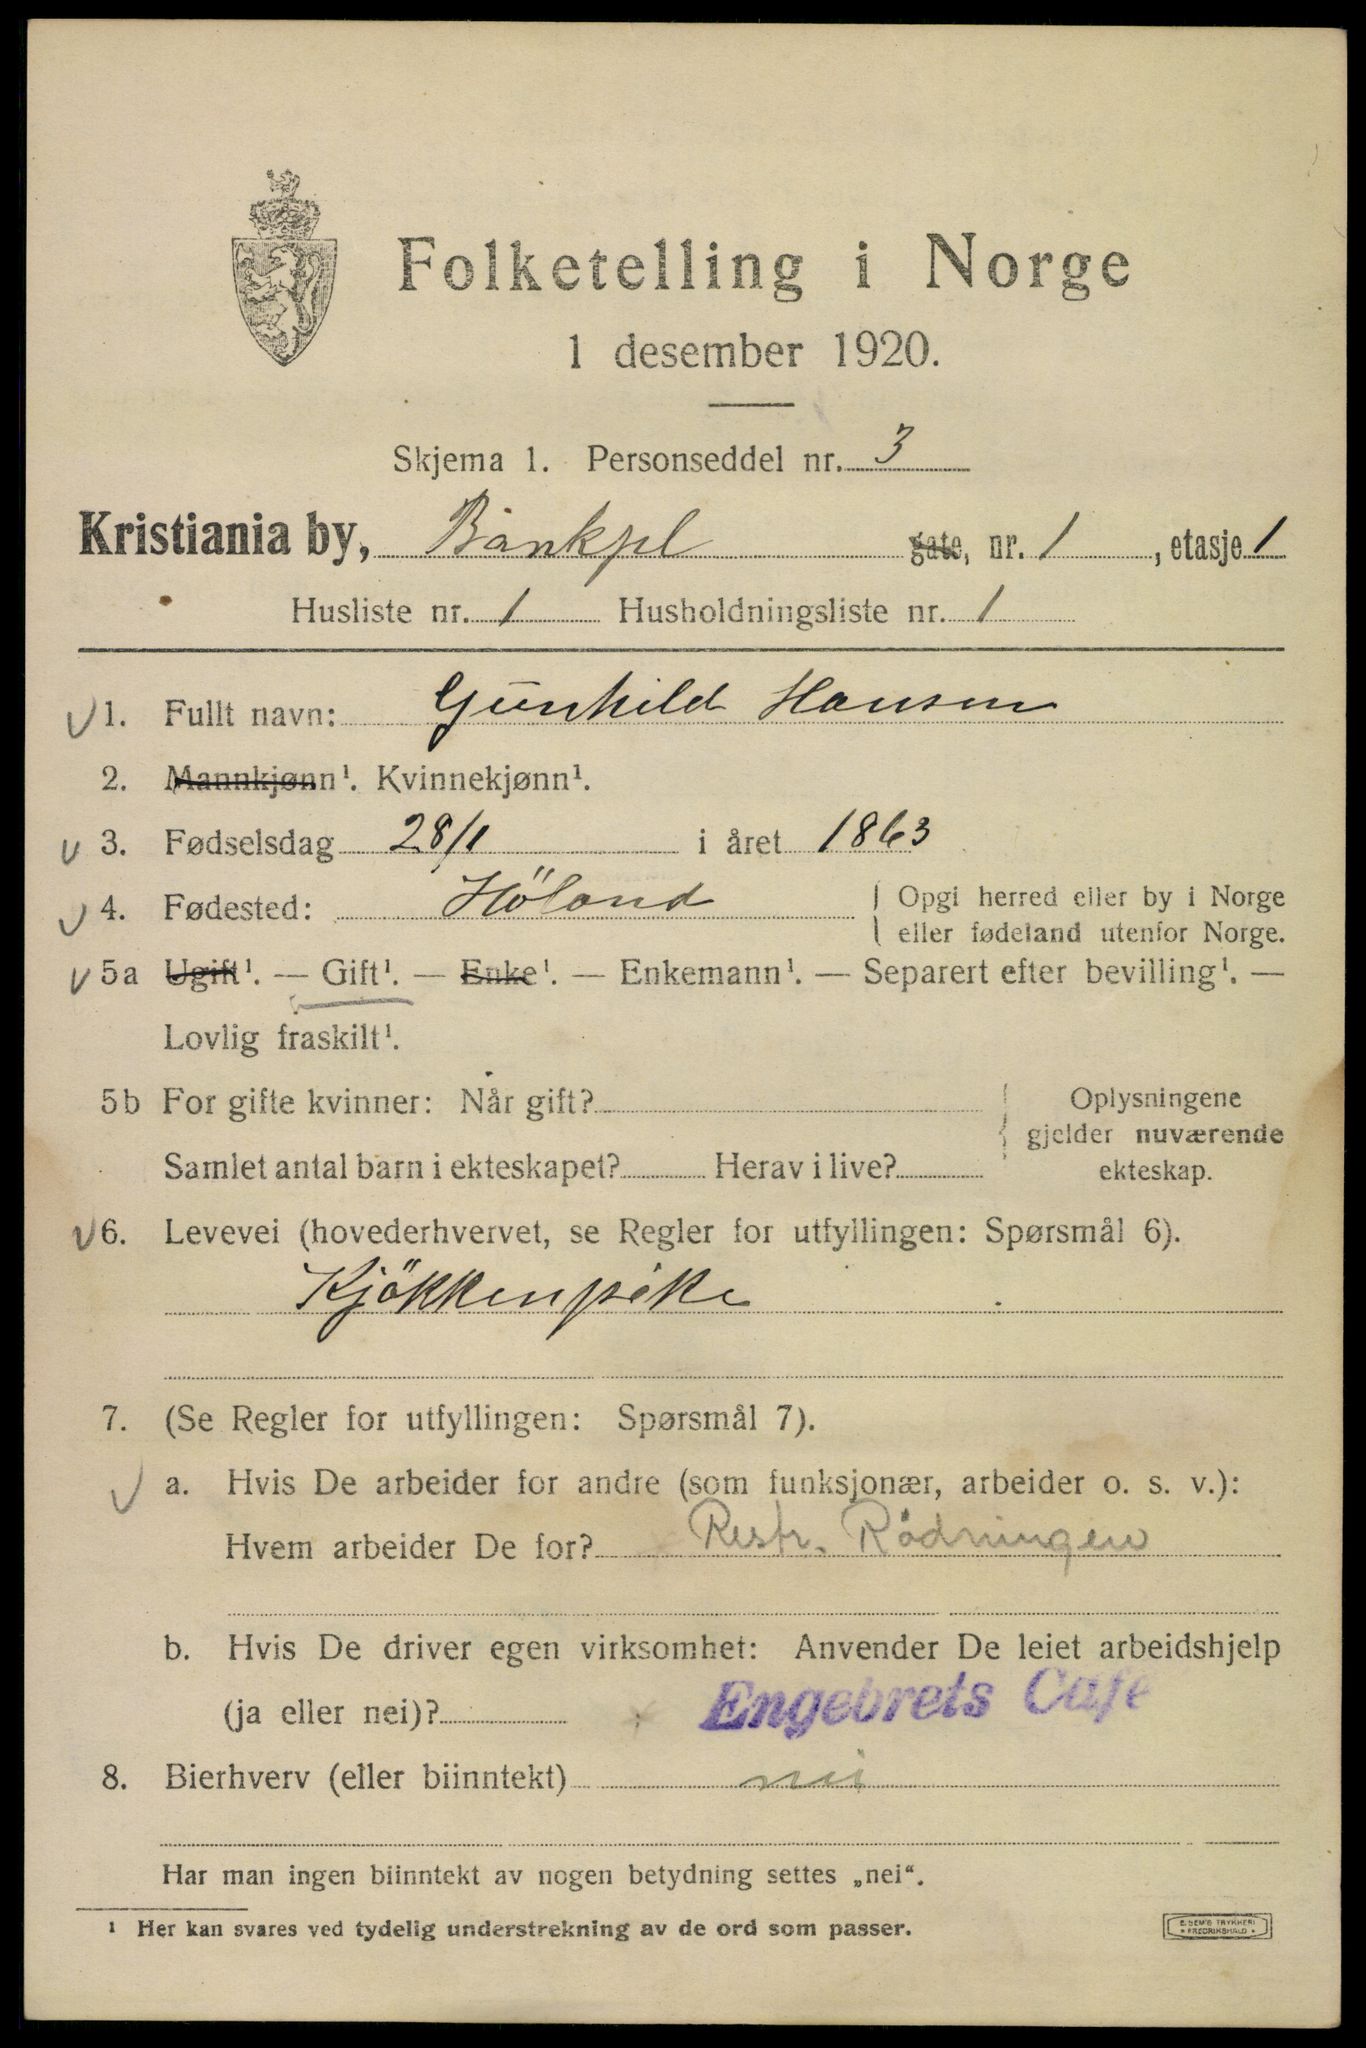 Folketelling i Norge
1 desember 1920.
Skjema 1. Personseddel nr. 3
Kristiania by, Bankpl gate, nr. 1, etasje 1
Husliste nr. 1 Husholdningsliste nr. 1
1. Fullt navn: Gunhild Hansen
2. Mannkjønn¹. Kvinnekjønn¹.
3. Fødselsdag 28/1 i året 1863
4. Fødested: Höland Opgi herred eller by i Norge
eller fødeland utenfor Norge.
5a Ugift¹. — Gift¹. — Enke¹. — Enkemann¹. — Separert efter bevilling¹. —
Lovlig fraskilt¹.
5b For gifte kvinner: Når gift? Oplysningene
gjelder nuværende
Samlet antal barn i ekteskapet? Herav i live? ekteskap.
6. Levevei (hovederhvervet, se Regler for utfyllingen: Spørsmål 6).
Kjökkenpike
7. (Se Regler for utfyllingen: Spørsmål 7).
a. Hvis De arbeider for andre (som funksjonær, arbeider o. s. v.):
Hvem arbeider De for? Restr. Rödningen
b. Hvis De driver egen virksomhet: Anvender De leiet arbeidshjelp
(ja eller nei)? Engebrets Café
8. Bierhverv (eller biinntekt) nei
Har man ingen biinntekt av nogen betydning settes „nei“.
¹ Her kan svares ved tydelig understrekning av de ord som passer.
E. SEM'S TRYKKERI
FREDRIKSHALD